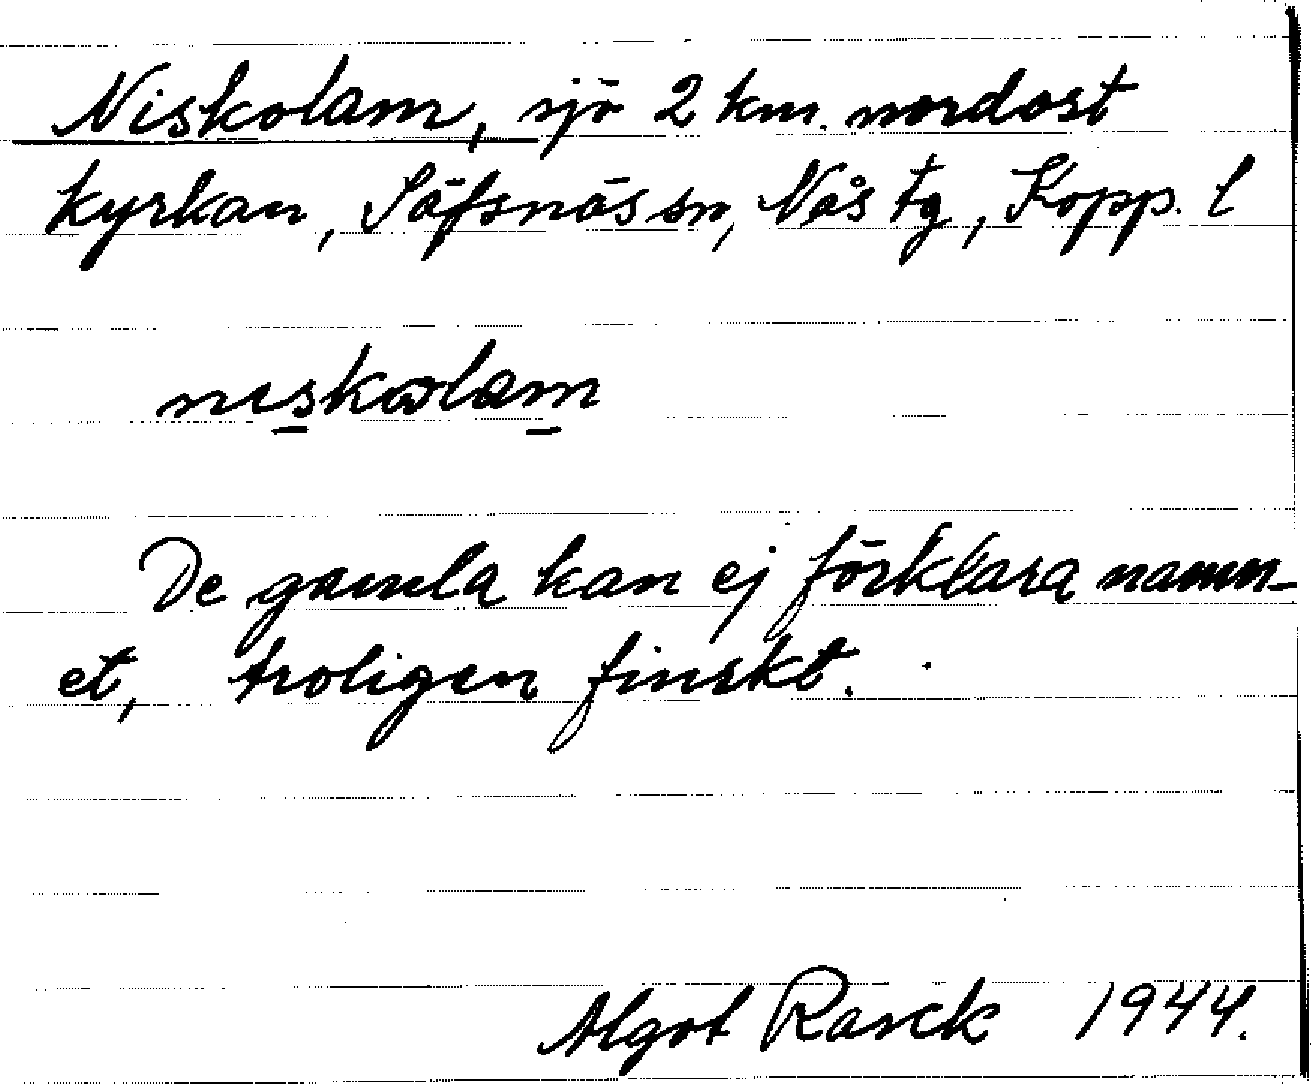 Niskolam, sjö 2 km. nordost
kyrkan, Säfsnäs sn, Nås tg, Kopp. l
nɪskωlam
De gamla kan ej förklara namn-
et, troligen finskt.
Algot Rasck 1944.